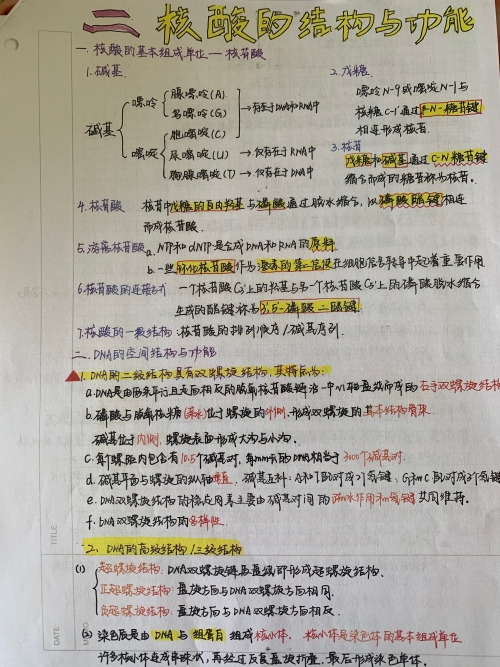 二 核酸的结构与功能
一. 核酸的基本组成单位——核苷酸
1. 碱基
碱基
嘌呤
腺嘌呤(A)
鸟嘌呤(G)
胞嘧啶(C)
→存在于DNA和RNA中
嘧啶
尿嘧啶(U) → 仅存在于RNA中
胸腺嘧啶(T) → 仅存在于DNA中
2. 戊糖
嘌呤N-9或嘧啶N-1与
核糖C-1'通过β-N-糖苷键
相连形成核苷.
3. 核苷
戊糖和碱基通过C-N糖苷键
缩合而成的糖苷称为核苷。
4. 核苷酸 核苷中戊糖的自由羟基与磷酸通过脱水缩合,以磷酸酯键相连
而成核苷酸.
5. 游离核苷酸 a. NTP和dNTP是合成DNA和RNA的原料
b. 一些环化核苷酸作为激素的第二信使在细胞信号转导中起着重要作用
6. 核苷酸的连接方式 一个核苷酸C3'上的羟基与另一个核苷酸C5'上的磷酸脱水缩合
生成的酯键称为3',5'-磷酸二酯键
7. 核酸的一级结构: 核苷酸的排列顺序/碱基序列.
二. DNA的空间结构与功能
1. DNA的二级结构具有双螺旋结构,其特点为:
a. DNA是由两条平行且走向相反的脱氧核苷酸链沿一中心轴盘绕而成的右手双螺旋结构
b. 磷酸与脱氧核糖(亲水)位于螺旋的外侧,形成双螺旋的基本结构骨架.
碱基位于内侧. 螺旋表面形成大沟与小沟.
c. 每个螺距内包含有10.5个碱基对, 每mm长的DNA相当于3000个碱基对.
d. 碱基平面与螺旋的纵轴垂直. 碱基互补: A和T配对成2个氢键. G和C配对成3个氢键
e. DNA双螺旋结构的稳定用主要由碱基对间的疏水作用和氢键共同维持.
f. DNA双螺旋结构的多样性.
2. DNA的高级结构/三级结构
(1)
超螺旋结构: DNA双螺旋链再盘绕即形成超螺旋结构.
正超螺旋结构: 盘旋方向与DNA双螺旋方向相同.
负超螺旋结构: 盘旋方向与DNA双螺旋方向相反.
(2) 染色质是由DNA与组蛋白组成核小体. 核小体是染色体的基本组成单位
许多核小体连成串珠状,再经过反复盘旋折叠,最后形成染色单体.
TITLE
DATE